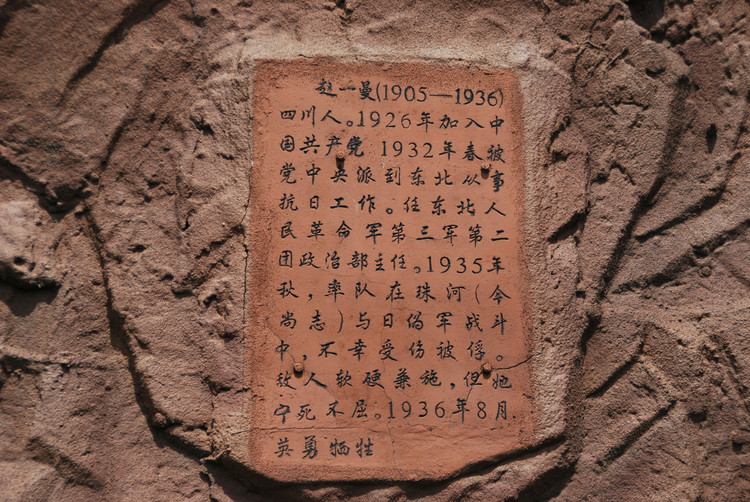 赵一曼(1905—1936)
四川人。1926年加入中
国共产党 1932年春被
党中央派到东北从事
抗日工作。任东北人
民革命军第三军第二
团政治部主任。1935年
秋，率队在珠河(今
尚志)与日伪军战斗
中，不幸受伤被俘。
敌人软硬兼施，但她
宁死不屈。1936年8月
英勇牺牲